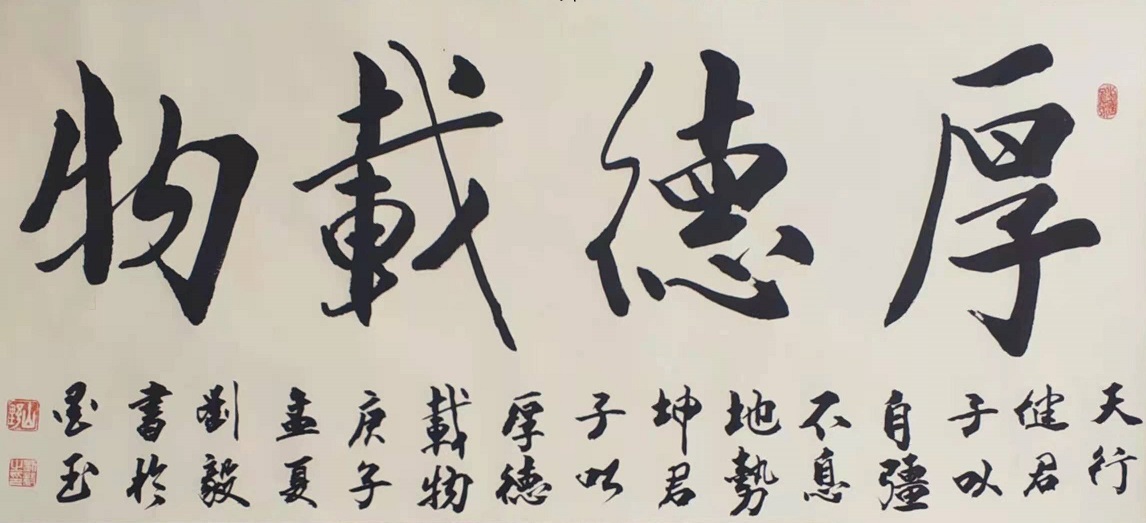 厚德載物
天行
健君
子以
自彊
不息
地勢
坤君
子以
厚德
載物
庚子
孟夏
劉毅
書於
墨玉